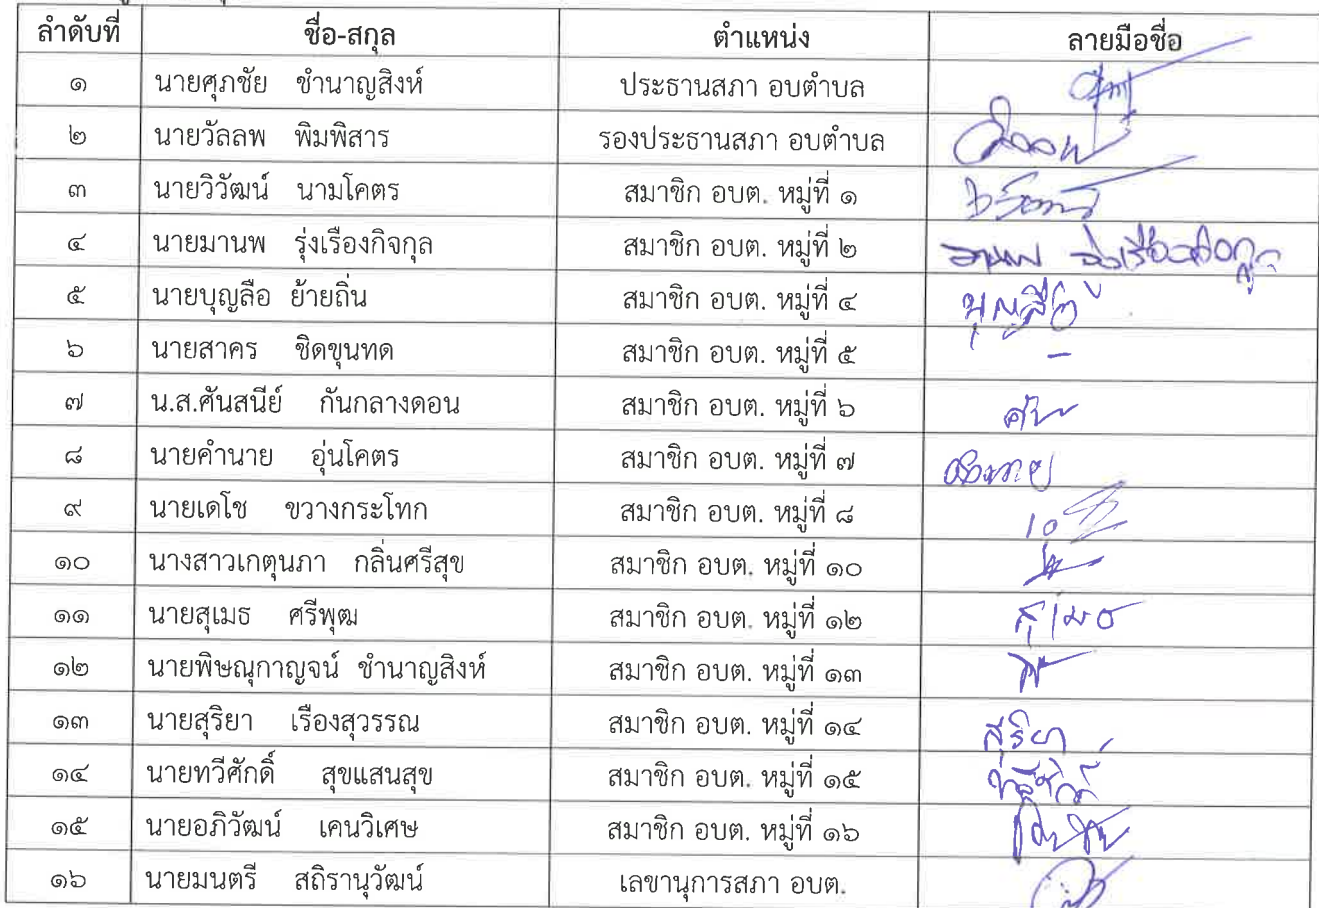 ลำดับที่ ชื่อ-สกุล ตำแหน่ง ลายมือชื่อ
๑ นายศุภชัย ชำนาญสิงห์ ประธานสภา อบตำบล
๒ นายวัลลพ พิมพิสาร รองประธานสภา อบตำบล
๓ นายวิวัฒน์ นามโคตร สมาชิก อบต. หมู่ที่ ๑
๔ นายมานพ รุ่งเรืองกิจกุล สมาชิก อบต. หมู่ที่ ๒
๕ นายบุญลือ ย้ายถิ่น สมาชิก อบต. หมู่ที่ ๔ บุญลือ
๖ นายสาคร ชิดขุนทด สมาชิก อบต. หมู่ที่ ๕ -
๗ น.ส.ศันสนีย์ กันกลางดอน สมาชิก อบต. หมู่ที่ ๖
๘ นายคำนาย อุ่นโคตร สมาชิก อบต. หมู่ที่ ๗
๙ นายเดโช ขวางกระโทก สมาชิก อบต. หมู่ที่ ๘
๑๐ นางสาวเกตุนภา กลิ่นศรีสุข สมาชิก อบต. หมู่ที่ ๑๐
๑๑ นายสุเมธ ศรีพุฒ สมาชิก อบต. หมู่ที่ ๑๒ สุเมธ
๑๒ นายพิษณุกาญจน์ ชำนาญสิงห์ สมาชิก อบต. หมู่ที่ ๑๓
๑๓ นายสุริยา เรืองสุวรรณ สมาชิก อบต. หมู่ที่ ๑๔ สุริยา
๑๔ นายทวีศักดิ์ สุขแสนสุข สมาชิก อบต. หมู่ที่ ๑๕
๑๕ นายอภิวัฒน์ เคนวิเศษ สมาชิก อบต. หมู่ที่ ๑๖
๑๖ นายมนตรี สถิรานุวัฒน์ เลขานุการสภา อบต.